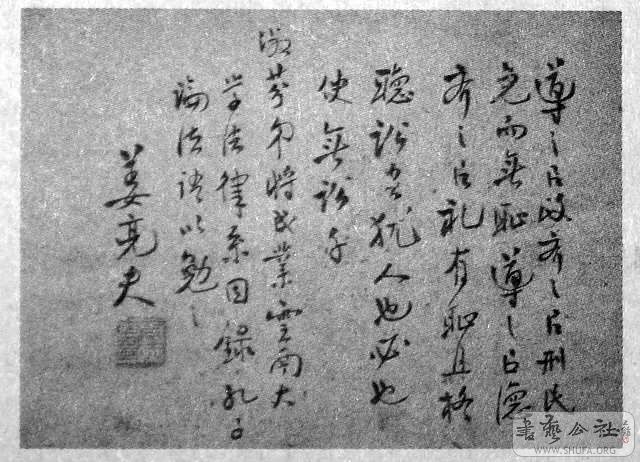 導之㠯政齊之㠯刑民
免而無恥導之㠯德
齊之㠯礼有恥且格
聽訟吾犹人也必也
使無訟乎
芬弟將成業雲南大
学法律系因録孔子
論法語以勉之
姜亮夫
書藝公社
WWW.SHUFA.ORG